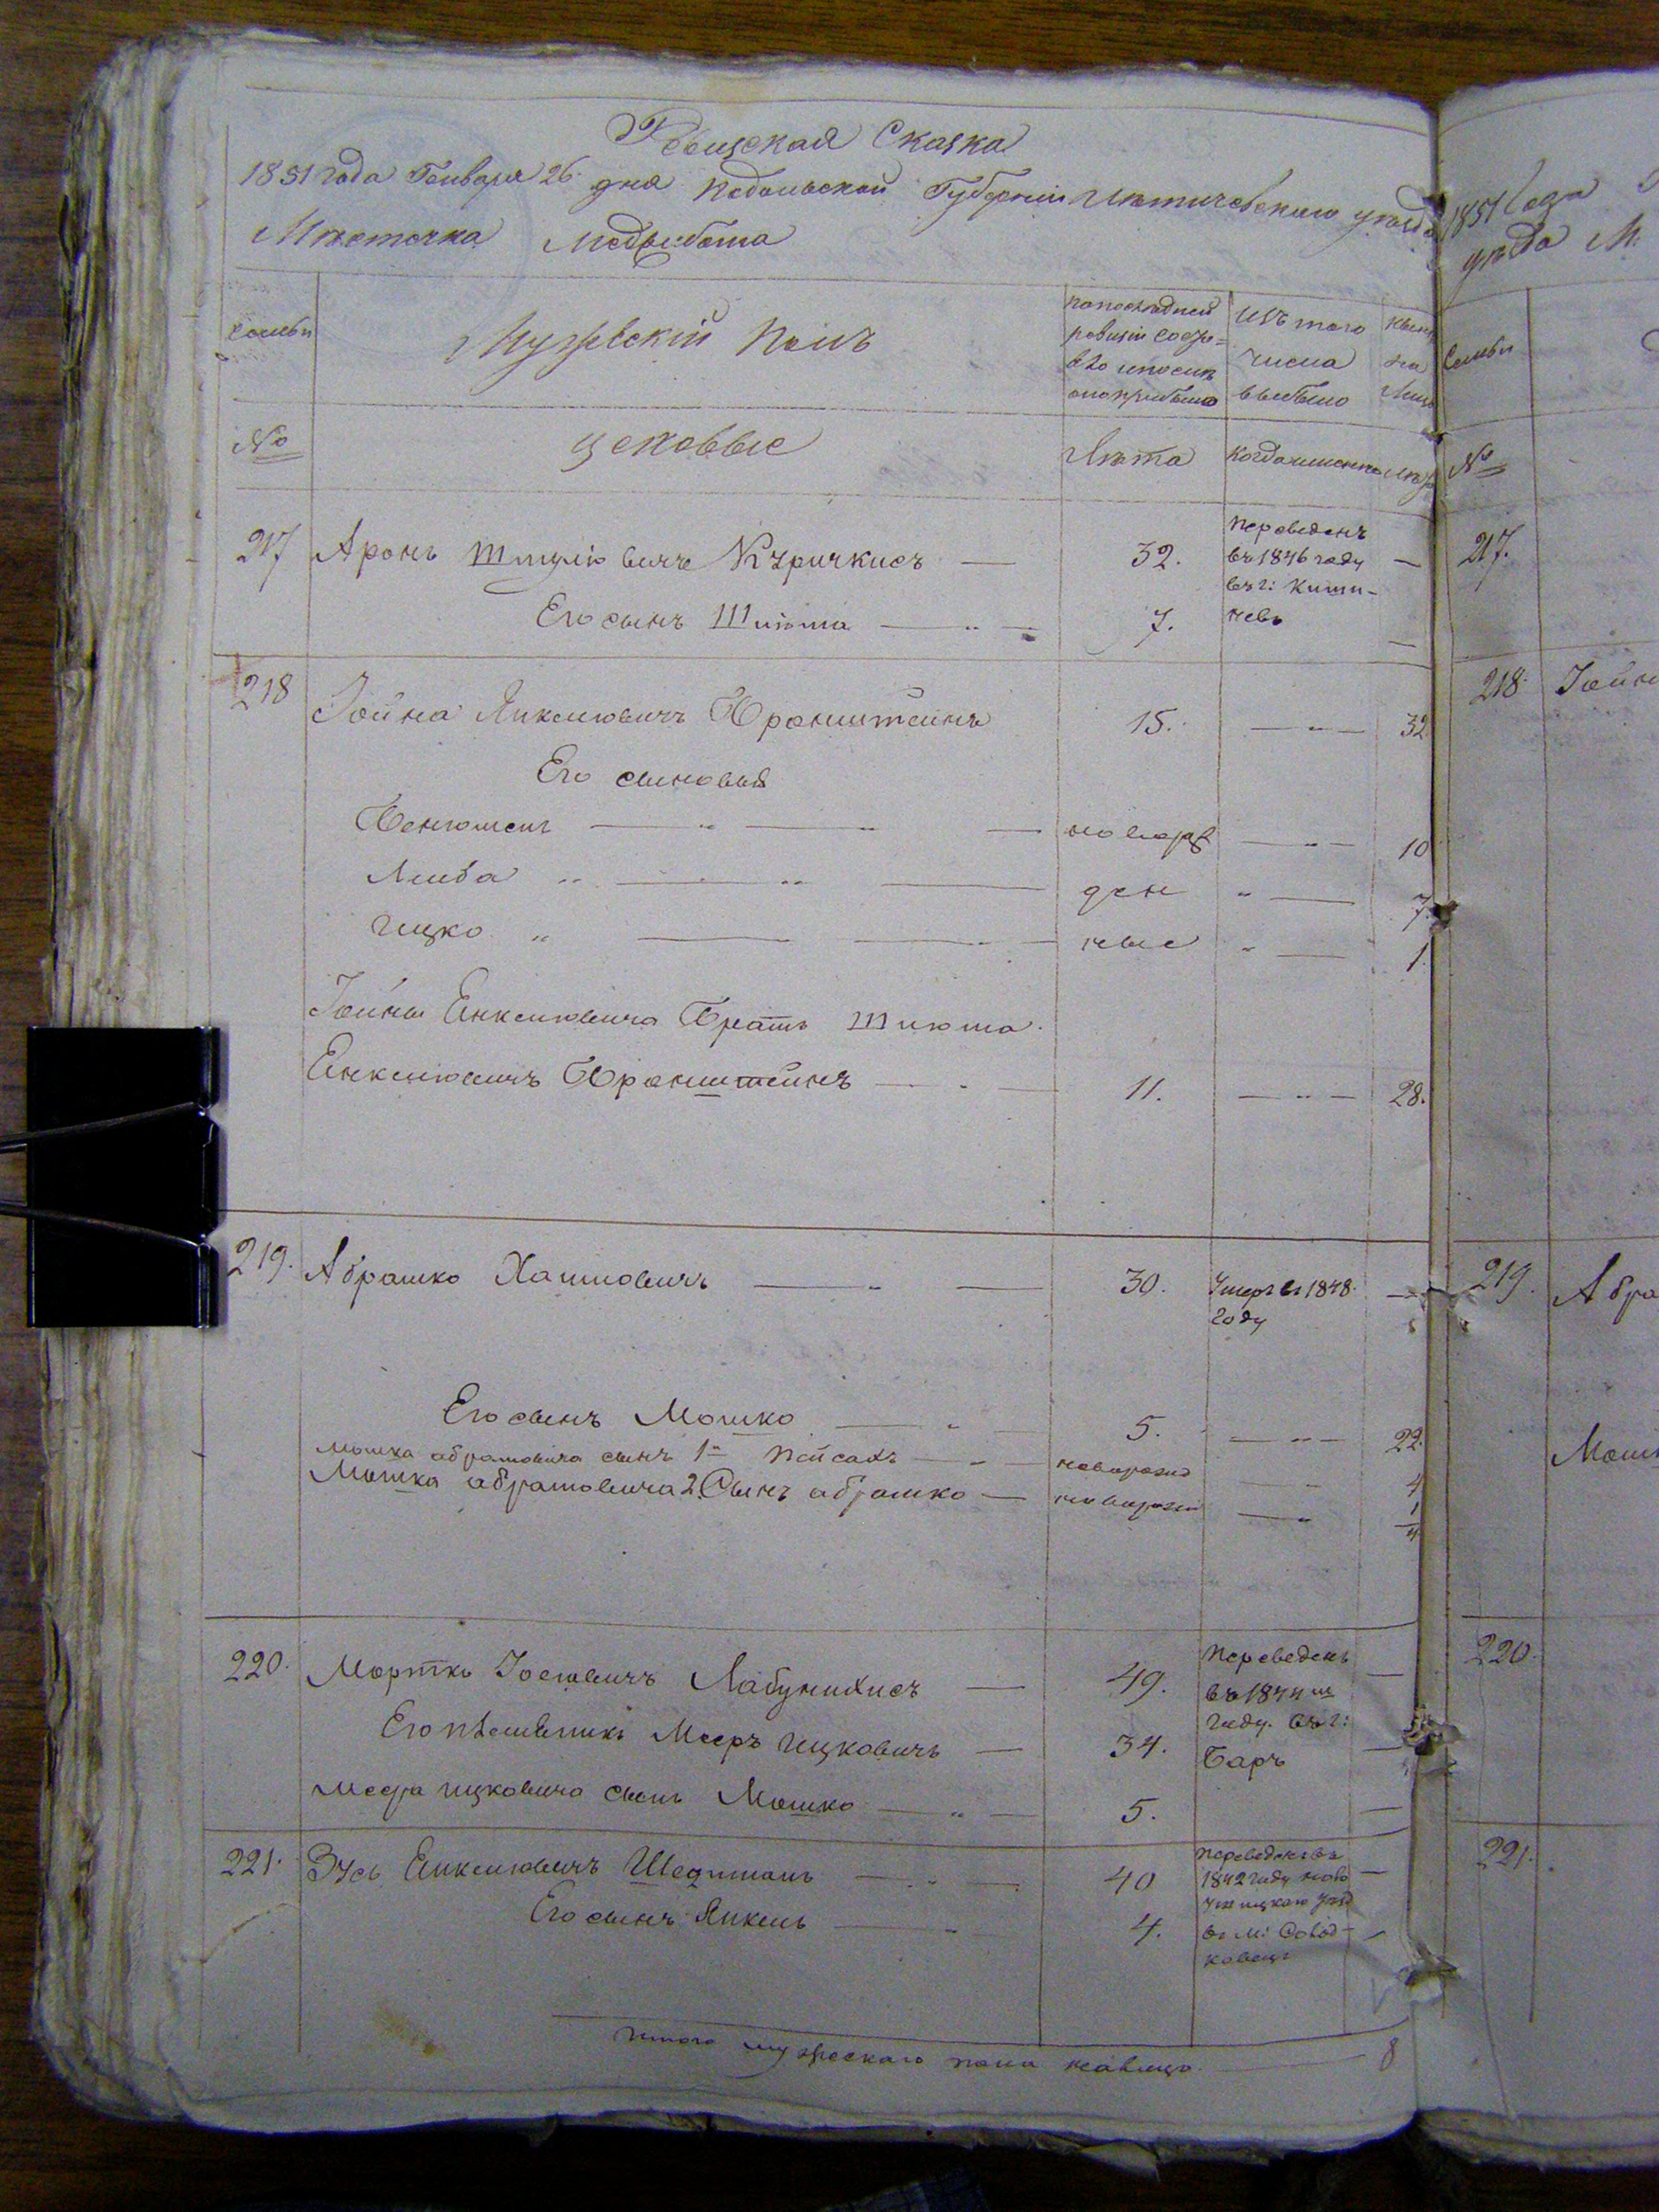 Ревизская Сказка
1851 года Генваря 26 дня Подольской Губернии Летичевского уезда
Местечка Меджибожа
семьи
Мужескій Полъ
по последней ревизіи состояло и после оной прибыло
изъ того числа выбыло
ныне на лицо
№
цеховые
Лета
когда именно
лета
217 Аронъ Шмулiовичъ — 32. Переведенъ въ 1846 году въ г: Кишиневъ —
Его сынъ Шлiома — 7. —
218 Іойна Янкелiовичъ Бронштейнъ 15. — 32
Его сыновья
Бенюменъ — новорож — 10
Лейба — ден — 7.
Ицко — ные — 1.
Іойны Енкелiовича Братъ Шлiома
Енкелiовичъ Бронштейнъ — 11. — 28.
219. Абрашко Хаимовичъ — 30. Умеръ въ 1848 году —
Его сынъ Мошко — 5. — 22.
Мошка Абрамовича сынъ 1й Пейсахъ — новорожд — 4
Мошка Абрамовича 2. Сынъ Абрашко — новорожд — 1/4
220. Мортко Іосiовичъ Лабунскисъ — 49. Переведенъ въ 1844м году въ г: Баръ —
Его племянникъ Мееръ Ицковичъ — 34. —
Меера Ицковича сынъ Мошко — 5. —
221. Зусь Енкелiовичъ — 40 Переведенъ въ 1842 году Ново Ушицкаго уезд въ м: —
Его сынъ Янкель — 4. —
Итого мужескаго пола на лицо — 8
1851 года
уезда М:
семьи
№
217.
218. Іойн
219. Абра
Мошк
220.
221.